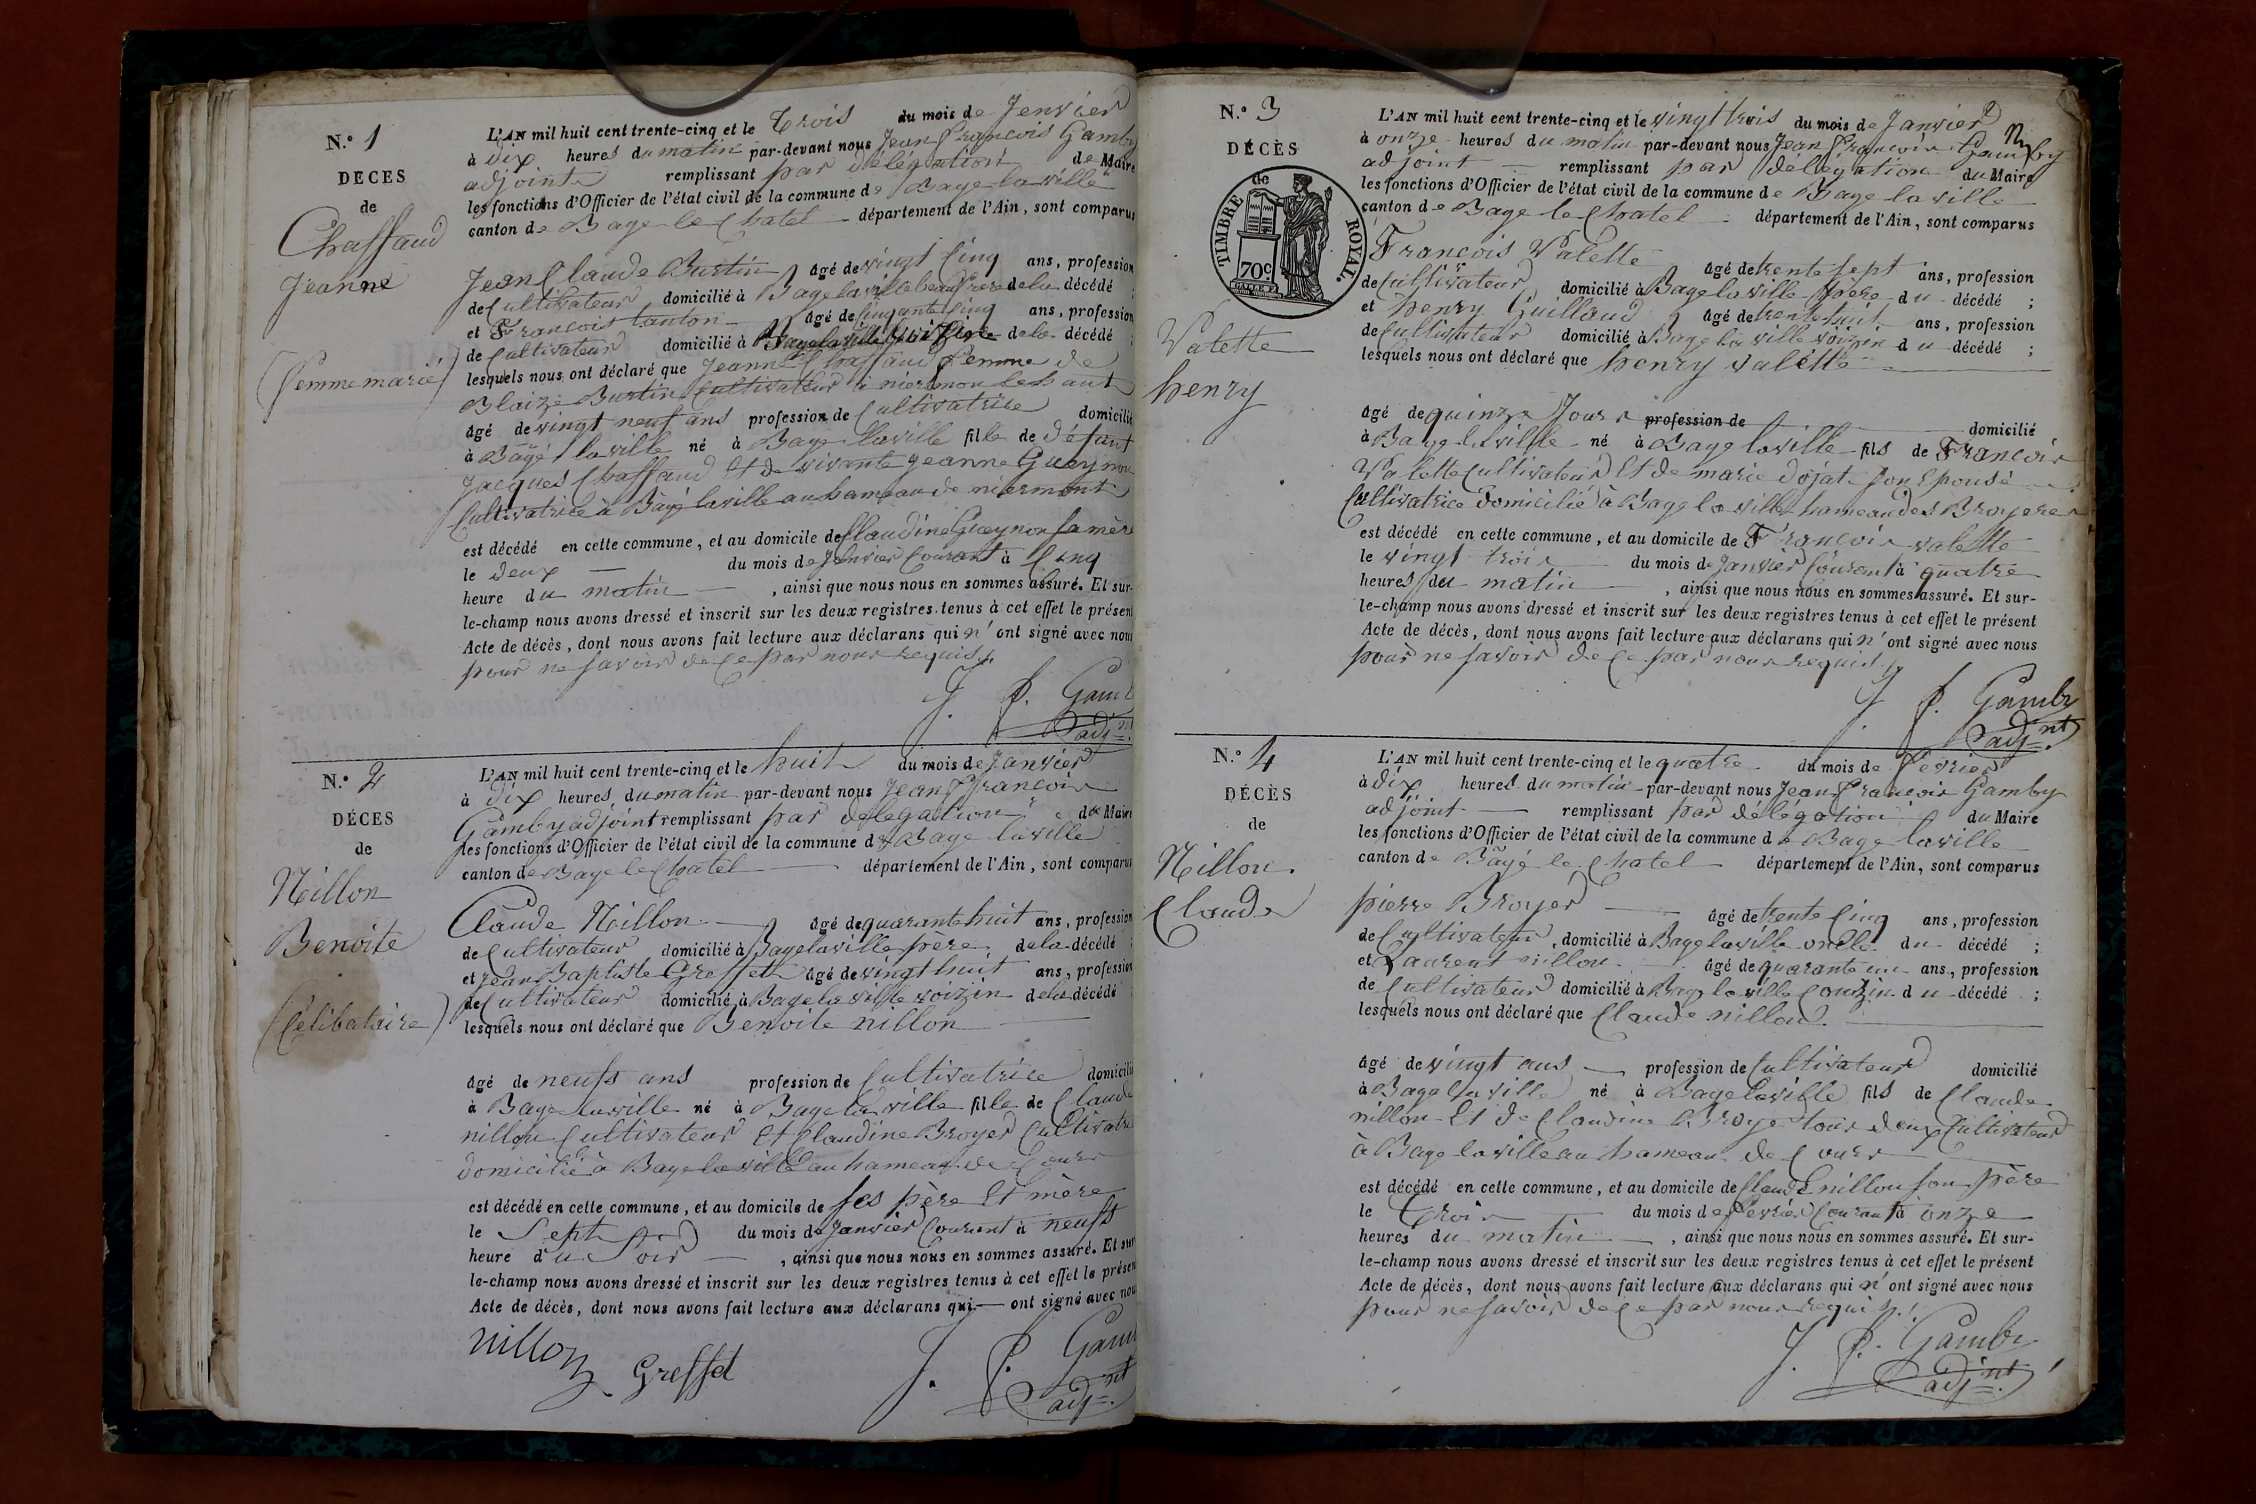 N.° 1
DÉCES
de
Chaffaud
Jeanne
(femme marié)
L'AN mil huit cent trente-cinq et le trois du mois de Jenvier
à dix heures du matin par-devant nous Jean François Gamby
adjoint remplissant par délégation de Maire
les fonctions d'Officier de l'état civil de la commune de Bage la ville
canton de Bage le Chatel département de l'Ain, sont comparus
Jean Claude Burtin agé de vingt Cinq ans, profession
de Cultivateur domicilié à Bage la ville beau frere de la décédé ;
et François tanton agé de Cinquante Cinq ans, profession
de Cultivateur domicilié à Bage la ville de la décédé ;
lesquels nous ont déclaré que Jeanne Chaffaud femme de
Blaize Burtin Cultivateur a niermon le haut
agé de vingt neuf ans profession de Cultivatrice domicilié
à Bagé la ville né à Bage la ville fille de défunt
Jacques Chaffaud Et de vivante jeanne Gueynon
Cultivatrice à Bagé la ville au hameau de niermont
est décédé en cette commune, et au domicile de Claudine Gueynon sa mère
le deux du mois de Jenvier Courant à Cinq
heure du matin , ainsi que nous nous en sommes assuré. Et sur-
le-champ nous avons dressé et inscrit sur les deux registres tenus à cet effet le présent
Acte de décès, dont nous avons fait lecture aux déclarans qui n'ont signé avec nous
pour ne savoir de Ce par nous requis
J. f. Gamb
adj.nt
N.° 2
DÉCES
de
Nillon
Benoite
(Célibataire)
L'AN mil huit cent trente-cinq et le huit du mois de Janvier
à dix heures du matin par-devant nous Jean François
Gamby adjoint remplissant par délégation du Maire
les fonctions d'Officier de l'état civil de la commune de Bage la ville
canton de Bage le Chatel département de l'Ain, sont comparus
Claude Nillon agé de quarante huit ans, profession
de Cultivateur domicilié à Bage la ville père de la décédé ;
et Jean Baptiste Greffet agé de vingt huit ans, profession
de Cultivateur domicilié à Bage la ville voizin de la décédé ;
lesquels nous ont déclaré que Benoite nillon
agé de neufs ans profession de Cultivatrice domicilié
à Bage la ville né à Bage la ville fille de Claude
nillon Cultivateur Et Claudine Broyer Cultivatri
domicilié à Bage la ville au hameau de Cours
est décédé en cette commune, et au domicile de ses père Et mère
le Sept du mois de Janvier Courant à neufs
heure du Soir , ainsi que nous nous en sommes assuré. Et sur
le-champ nous avons dressé et inscrit sur les deux registres tenus à cet effet le présent
Acte de décès, dont nous avons fait lecture aux déclarans qui ont signé avec nous
nillon Greffet J. f. Gam
adj.nt
N.° 3
DÉCÈS
de
TIMBRE ROYAL.
70c.
Valette
henry
L'AN mil huit cent trente-cinq et le vingt trois du mois de Janvier
à onze heures du matin par-devant nous Jean François Gamby
adjoint remplissant par délégation du Maire
les fonctions d'Officier de l'état civil de la commune de Bage la ville
canton de Bage le Chatel département de l'Ain, sont comparus
François Valette agé de trente sept ans, profession
de Cultivateur domicilié à Bage la ville père du décédé ;
et henry Guillaud agé de trente huit ans, profession
de Cultivateur domicilié à Bage la ville voizin du décédé ;
lesquels nous ont déclaré que henry valette
agé de quinze Jours profession de domicilié
à Bage la ville né à Bage la ville fils de François
Valette Cultivateur Et de marie dojat son Epousé
Cultivatrice domicilié à Bage la ville hameau des Broyeres
est décédé en cette commune, et au domicile de François valette
le vingt trois du mois de Janvier Courant à quatre
heures du matin , ainsi que nous nous en sommes assuré. Et sur-
le-champ nous avons dressé et inscrit sur les deux registres tenus à cet effet le présent
Acte de décès, dont nous avons fait lecture aux déclarans qui n'ont signé avec nous
pour ne savoir de Ce par nous requis
J. f. Gamby
adj.nt
N.° 4
DÉCÈS
de
Nillon
Claude
L'AN mil huit cent trente-cinq et le quatre du mois de fevrier
à dix heures du matin par-devant nous Jean François Gamby
adjoint remplissant par délégation du Maire
les fonctions d'Officier de l'état civil de la commune de Bage la ville
canton de Bagé le Chatel département de l'Ain, sont comparus
pierre Broyer agé de trente Cinq ans, profession
de Cultivateur, domicilié à Bage la ville oncle du décédé ;
et Laurent nillon agé de quarante un ans, profession
de Cultivateur domicilié à Bage la ville Couzin du décédé ;
lesquels nous ont déclaré que Claude nillon
agé de vingt ans profession de Cultivateur domicilié
à Bage la ville né à Bage la ville fils de Claude
nillon Et de Claudine Broyer tous deux Cultivateur
à Bage la ville au hameau de Cours
est décédé en cette commune, et au domicile de Claude nillon son père
le trois du mois de fevrier Courant à onze
heures du matin , ainsi que nous nous en sommes assuré. Et sur-
le-champ nous avons dressé et inscrit sur les deux registres tenus à cet effet le présent
Acte de décès, dont nous avons fait lecture aux déclarans qui n'ont signé avec nous
pour ne savoir de Ce par nous requis
J. f. Gamby
adj.nt